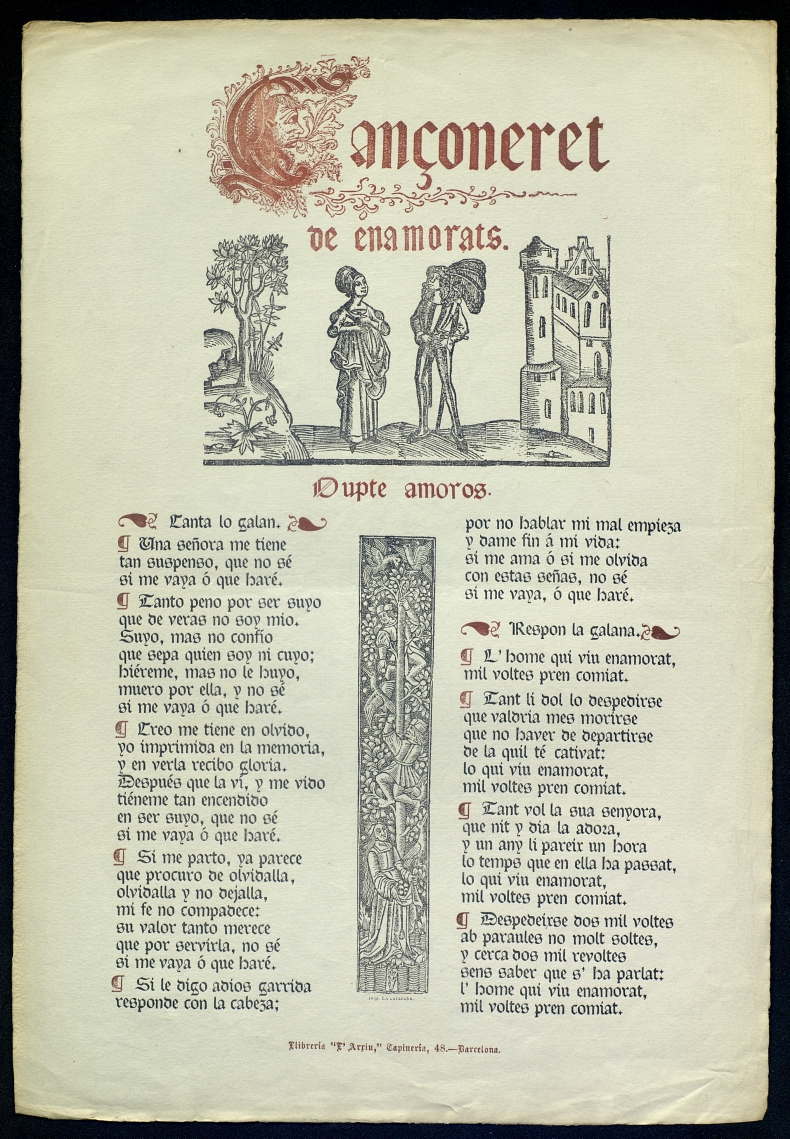 Cançoneret
de enamorats.
Dupte amoros.
Canta lo galan.
¶ Una señora me tiene
tan suspenso, que no sé
si me vaya ó que haré.
¶ Tanto peno por ser suyo
que de veras no soy mio.
Suyo, mas no confío
que sepa quien soy ni cuyo;
hiéreme, mas no le huyo,
muero por ella, y no sé
si me vaya ó que haré.
¶ Creo me tiene en olvido,
yo imprimida en la memoria,
y en verla recibo gloria.
Después que la ví, y me vido
tiéneme tan encendido
en ser suyo, que no sé
si me vaya ó que haré.
¶ Si me parto, ya parece
que procuro de olvidalla,
olvidalla y no dejalla,
mi fe no compadece:
su valor tanto merece
que por servirla, no sé
si me vaya ó que haré.
¶ Si le digo adios garrida
responde con la cabeza;
por no hablar mi mal empieza
y dame fin á mi vida:
si me ama ó si me olvida
con estas señas, no sé
si me vaya, ó que haré.
Respon la galana.
¶ L' home qui viu enamorat,
mil voltes pren comiat.
¶ Tant li dol lo despedirse
que valdria mes morirse
que no haver de departirse
de la quil té cativat:
lo qui viu enamorat,
mil voltes pren comiat.
¶ Tant vol la sua senyora,
que nit y dia la adora,
y un any li pareix un hora
lo temps que en ella ha passat,
lo qui viu enamorat,
mil voltes pren comiat.
¶ Despedeirse dos mil voltes
ab paraules no molt soltes,
y cerca dos mil revoltes
sens saber que s' ha parlat:
l' home qui viu enamorat,
mil voltes pren comiat.
Imp. La Catalana.
Llibrería "L' Arxiu," Tapinería, 48.—Barcelona.